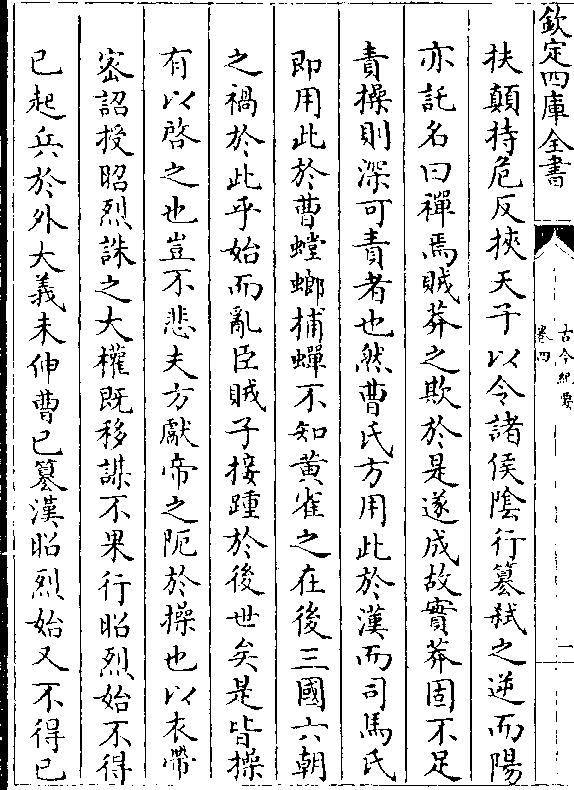 欽定四庫全書
古今紀要
卷四
一
扶顛持危反挾天子以令諸侯陰行簒弑之逆而陽
亦託名曰禪焉賊莽之欺於是遂成故實莽固不足
責操則深可責者也然曹氏方用此於漢而司馬氏
即用此於曹螳螂捕蟬不知黄雀之在後三國六朝
之禍於此乎始而亂臣賊子接踵於後世矣是皆操
有以啓之也豈不悲夫方獻帝之阨於操也以衣帶
宻詔授昭烈誅之大權既移謀不果行昭烈始不得
已起兵於外大義未伸曹已簒漢昭烈始又不得已